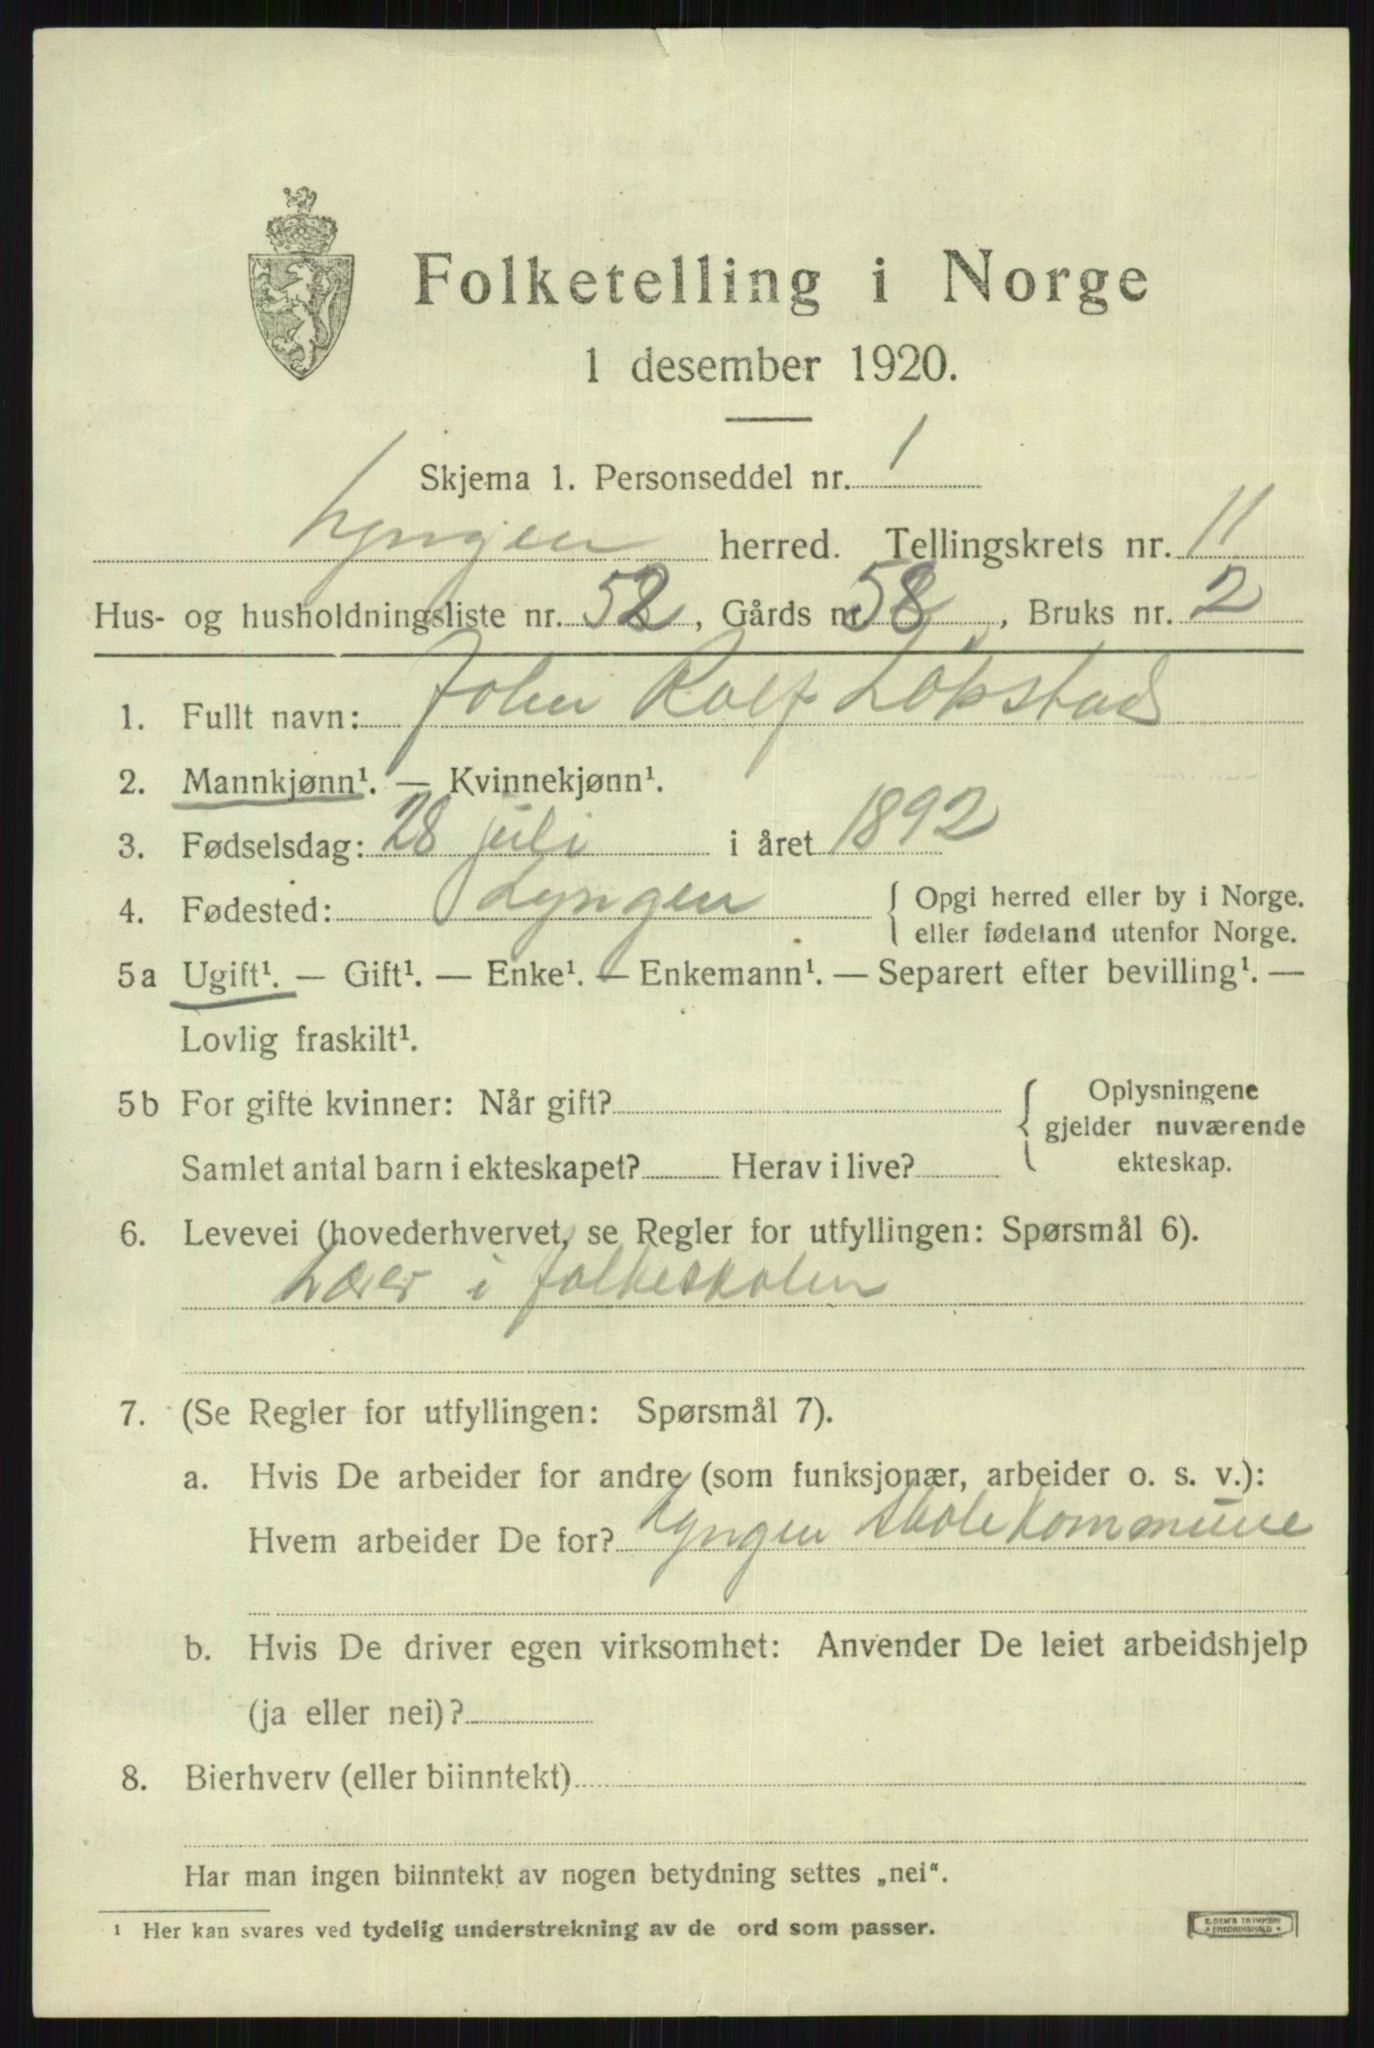 Folketelling i Norge
1 desember 1920.
Skjema 1. Personseddel nr. 1
Lyngen herred. Tellingskrets nr. 11
Hus- og husholdningsliste nr. 52, Gårds nr. 58, Bruks nr. 2
1. Fullt navn: John Rolf Løkstad
2. Mannkjønn¹. — Kvinnekjønn¹.
3. Fødselsdag: 28 juli i året 1892
4. Fødested: Lyngen { Opgi herred eller by i Norge.
eller fødeland utenfor Norge.
5a Ugift¹. — Gift¹. — Enke¹. — Enkemann¹. — Separert efter bevilling¹. —
Lovlig fraskilt¹.
5b For gifte kvinner: Når gift? { Oplysningene
gjelder nuværende
Samlet antal barn i ekteskapet? Herav i live? ekteskap.
6. Levevei (hovederhvervet, se Regler for utfyllingen: Spørsmål 6).
Lærer i folkeskolen
7. (Se Regler for utfyllingen: Spørsmål 7).
a. Hvis De arbeider for andre (som funksjonær, arbeider o. s. v.):
Hvem arbeider De for? Lyngen skolekommune
b. Hvis De driver egen virksomhet: Anvender De leiet arbeidshjelp
(ja eller nei)?
8. Bierhverv (eller biinntekt)
Har man ingen biinntekt av nogen betydning settes „nei“.
¹ Her kan svares ved tydelig understrekning av de ord som passer.
FREDRIKSHALD